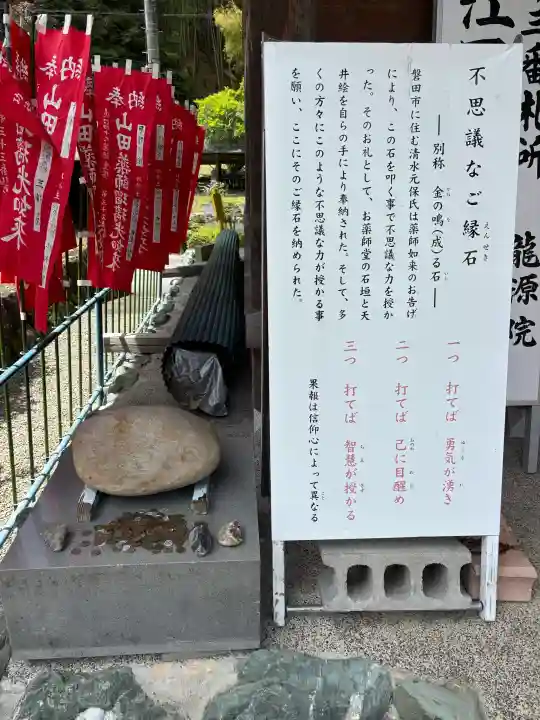 不思議なご縁石
えんせき
── 別称 金の鳴(成)る石 ──
磐田市に住む清水元保氏は薬師如来のお告げ
により、この石を叩く事で不思議な力を授か
った。そのお礼として、お薬師堂の石垣と天
井絵を自らの手により奉納された。そして、多
くの方々にこのような不思議な力が授かる事
を願い、ここにそのご縁石を納められた。
一つ 打てば 勇気が湧き
二つ 打てば 己に目醒め
三つ 打てば 智慧が授かる
果報は信仰心によって異なる
三番札所
龍源院
奉納
山田薬師瑠璃光如来
奉納
山田薬師瑠璃光如来